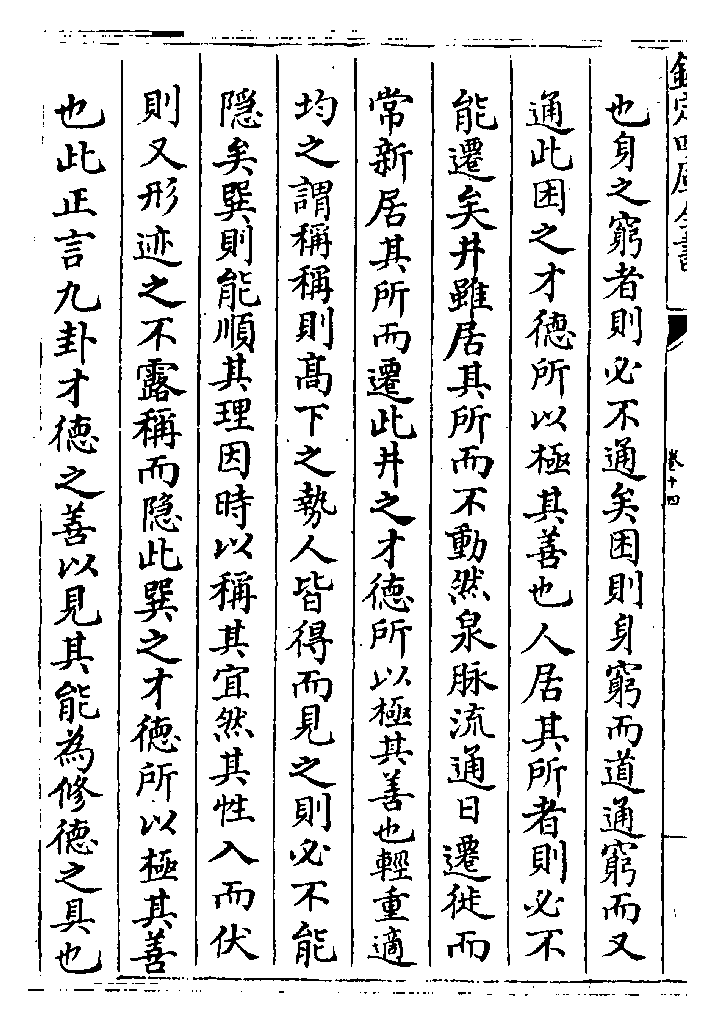 欽定四庫全書
卷十四
也身之窮者則必不通矣困則身窮而道通窮而又
通此困之才德所以極其善也人居其所者則必不
能遷矣井雖居其所而不動然泉脉流通日遷徙而
常新居其所而遷此井之才德所以極其善也輕重適
均之謂稱稱則高下之勢人皆得而見之則必不能
隱矣巽則能順其理因時以稱其宜然其性入而伏
則又形迹之不露稱而隱此巽之才德所以極其善
也此正言九卦才德之善以見其能為修德之具也